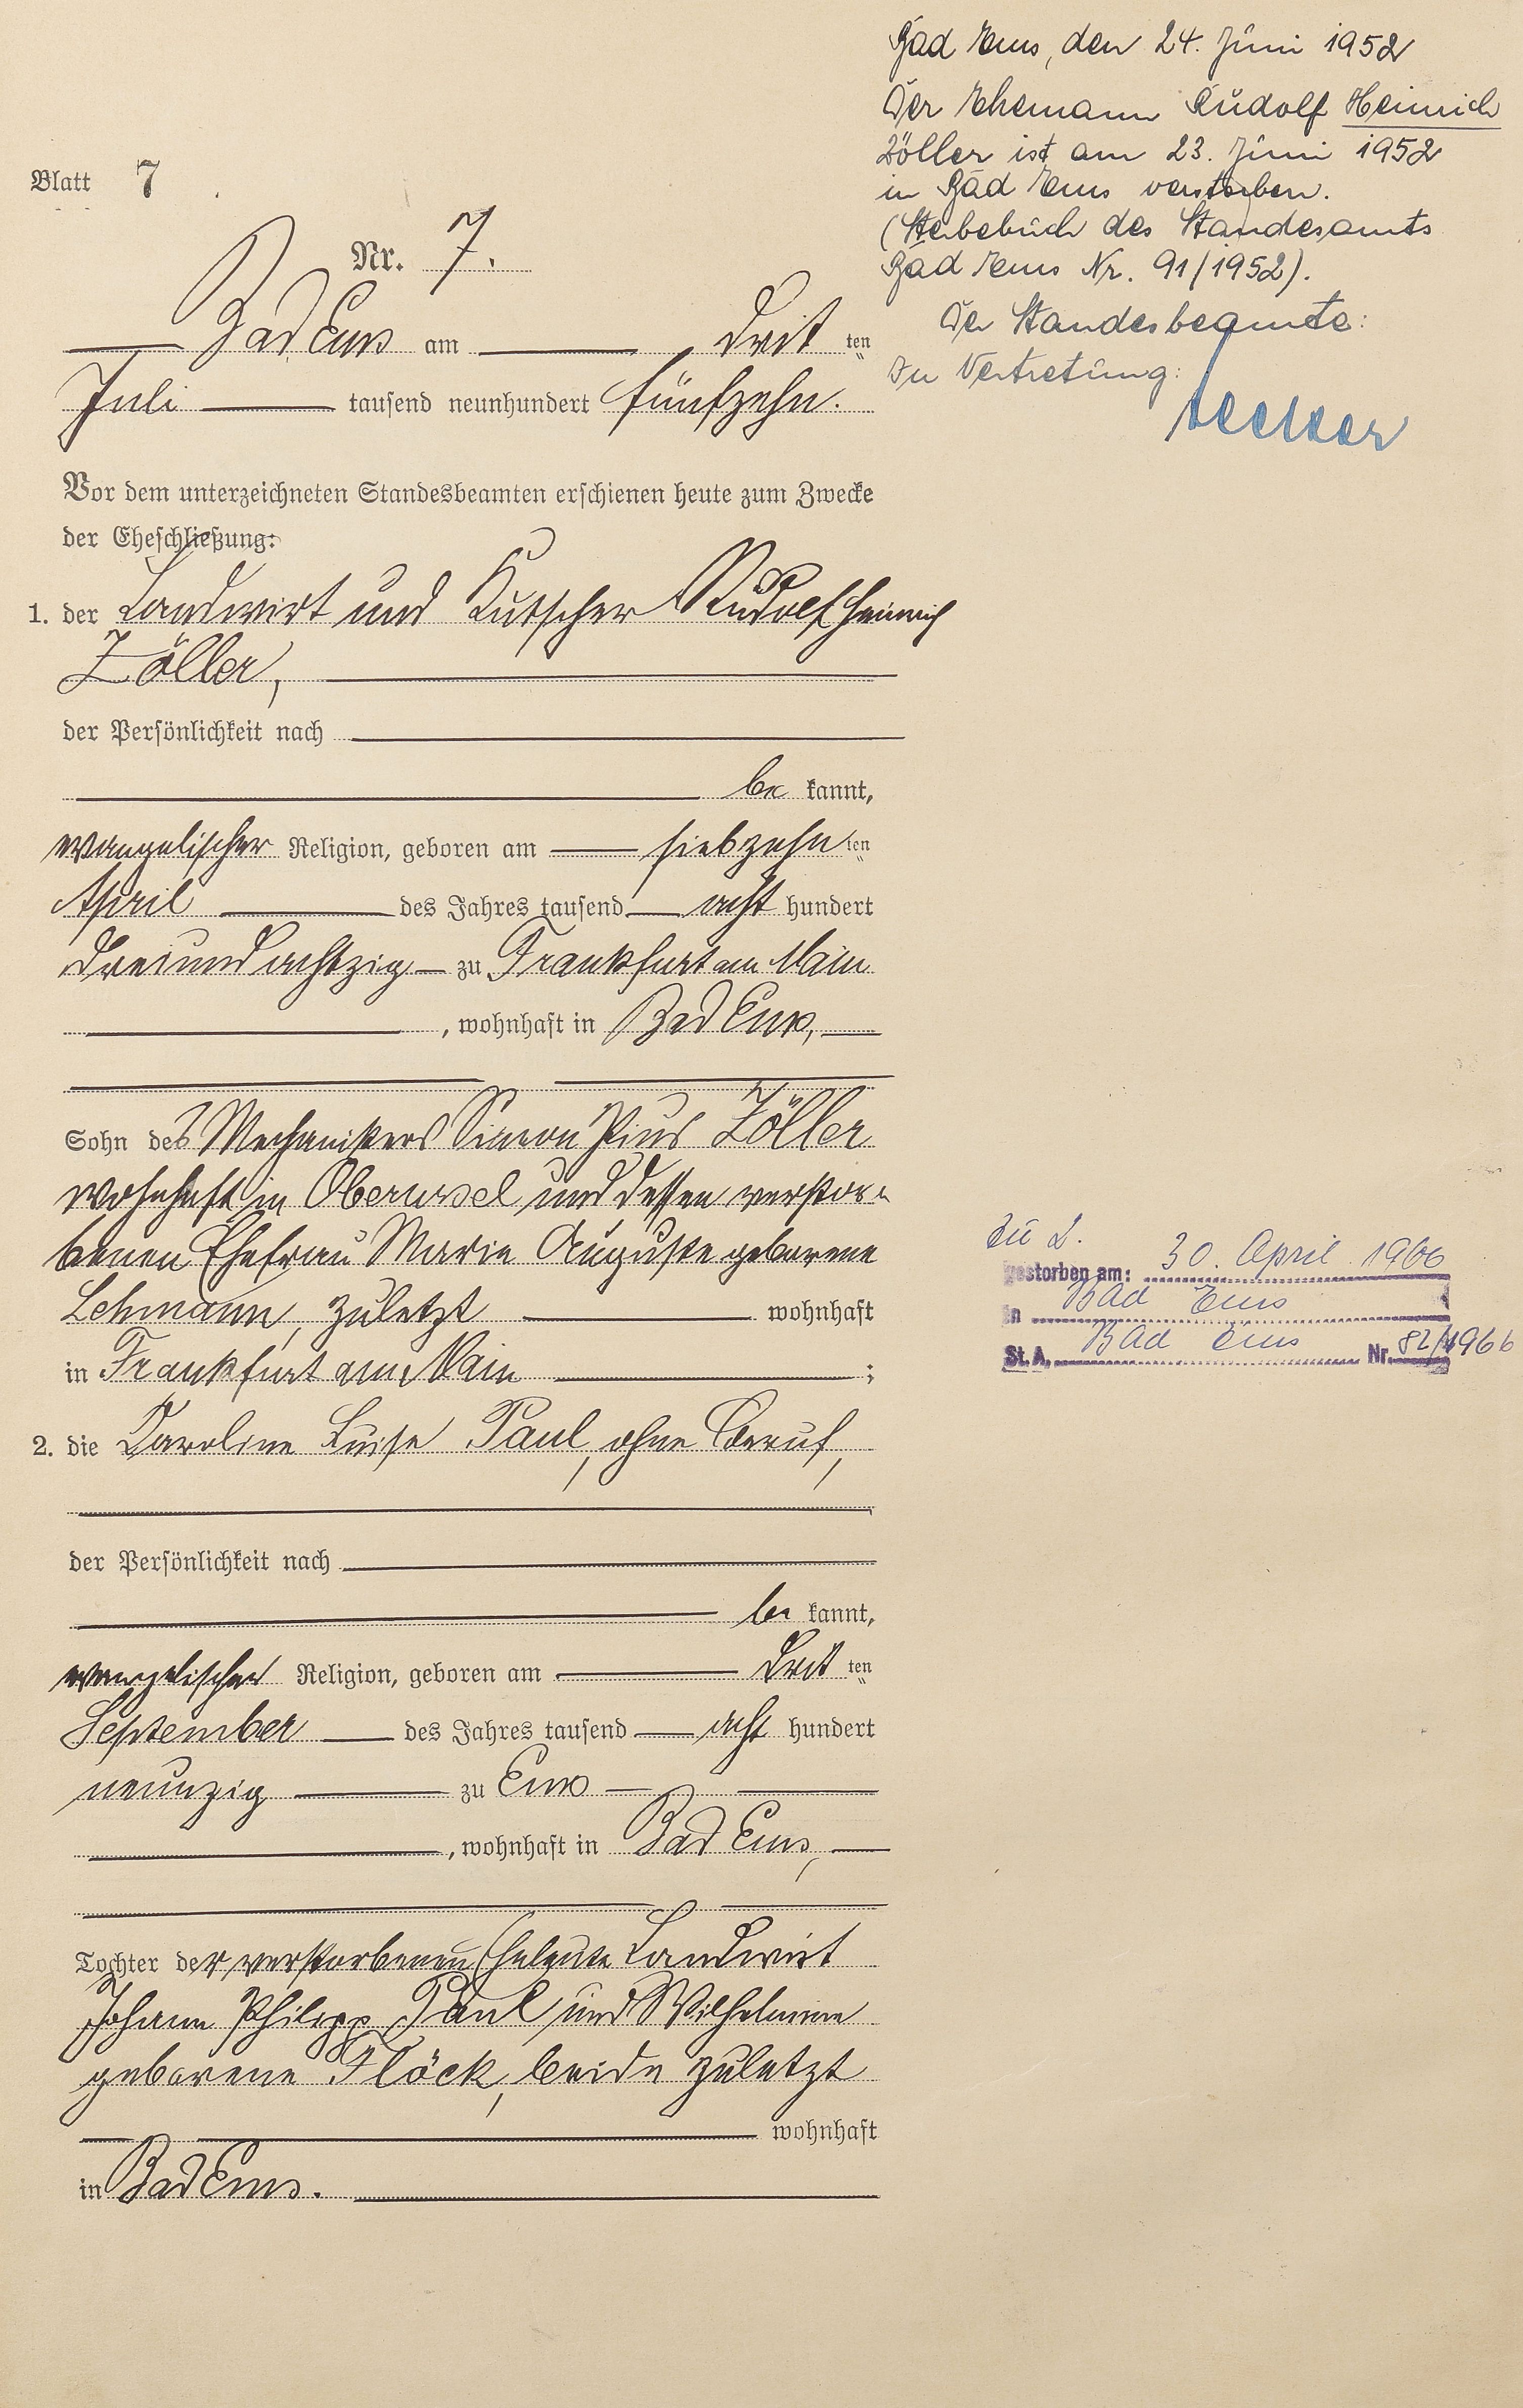 Blatt 7
Nr. 7.
Bad Ems am dritten
Juli tausend neunhundert fünfzehn.
Vor dem unterzeichneten Standesbeamten erschienen heute zum Zwecke
der Eheschließung:
1. der Landwirt und Kutscher Rudolf Heinrich
Zöller,
der Persönlichkeit nach
be kannt,
evangelischer Religion, geboren am siebzehn ten
April des Jahres tausend acht hundert
dreiundachtzig zu Frankfurt am Main
, wohnhaft in Bad Ems,
Sohn des Mechanikers Simon Pius Zöller
wohnhaft in Oberursel und dessen verstor-
benen Ehefrau Marie Auguste geborene
Lehmann, zuletzt wohnhaft
in Frankfurt am Main ;
2. die Karoline Luise Paul, ohne Beruf,
der Persönlichkeit nach
be kannt,
evangelischer Religion, geboren am drit ten
September des Jahres tausend acht hundert
neunzig zu Ems
, wohnhaft in Bad Ems,
Tochter der verstorbenen Eheleute Landwirt
Johann Philipp Paul und Wilhelmine
geborene Flöck, beide zuletzt
wohnhaft
in Bad Ems.
Bad Ems, den 24. Juni 1952
Der Ehemann Rudolf Heinrich
Zöller ist am 23. Juni 1952
in Bad Ems verstorben.
(Sterbebuch des Standesamts
Bad Ems Nr. 91/1952).
Der Standesbeamte:
In Vertretung:
zu 2.
gestorben am: 30. April 1966
in Bad Ems
St. A. Bad Ems Nr. 82/1966